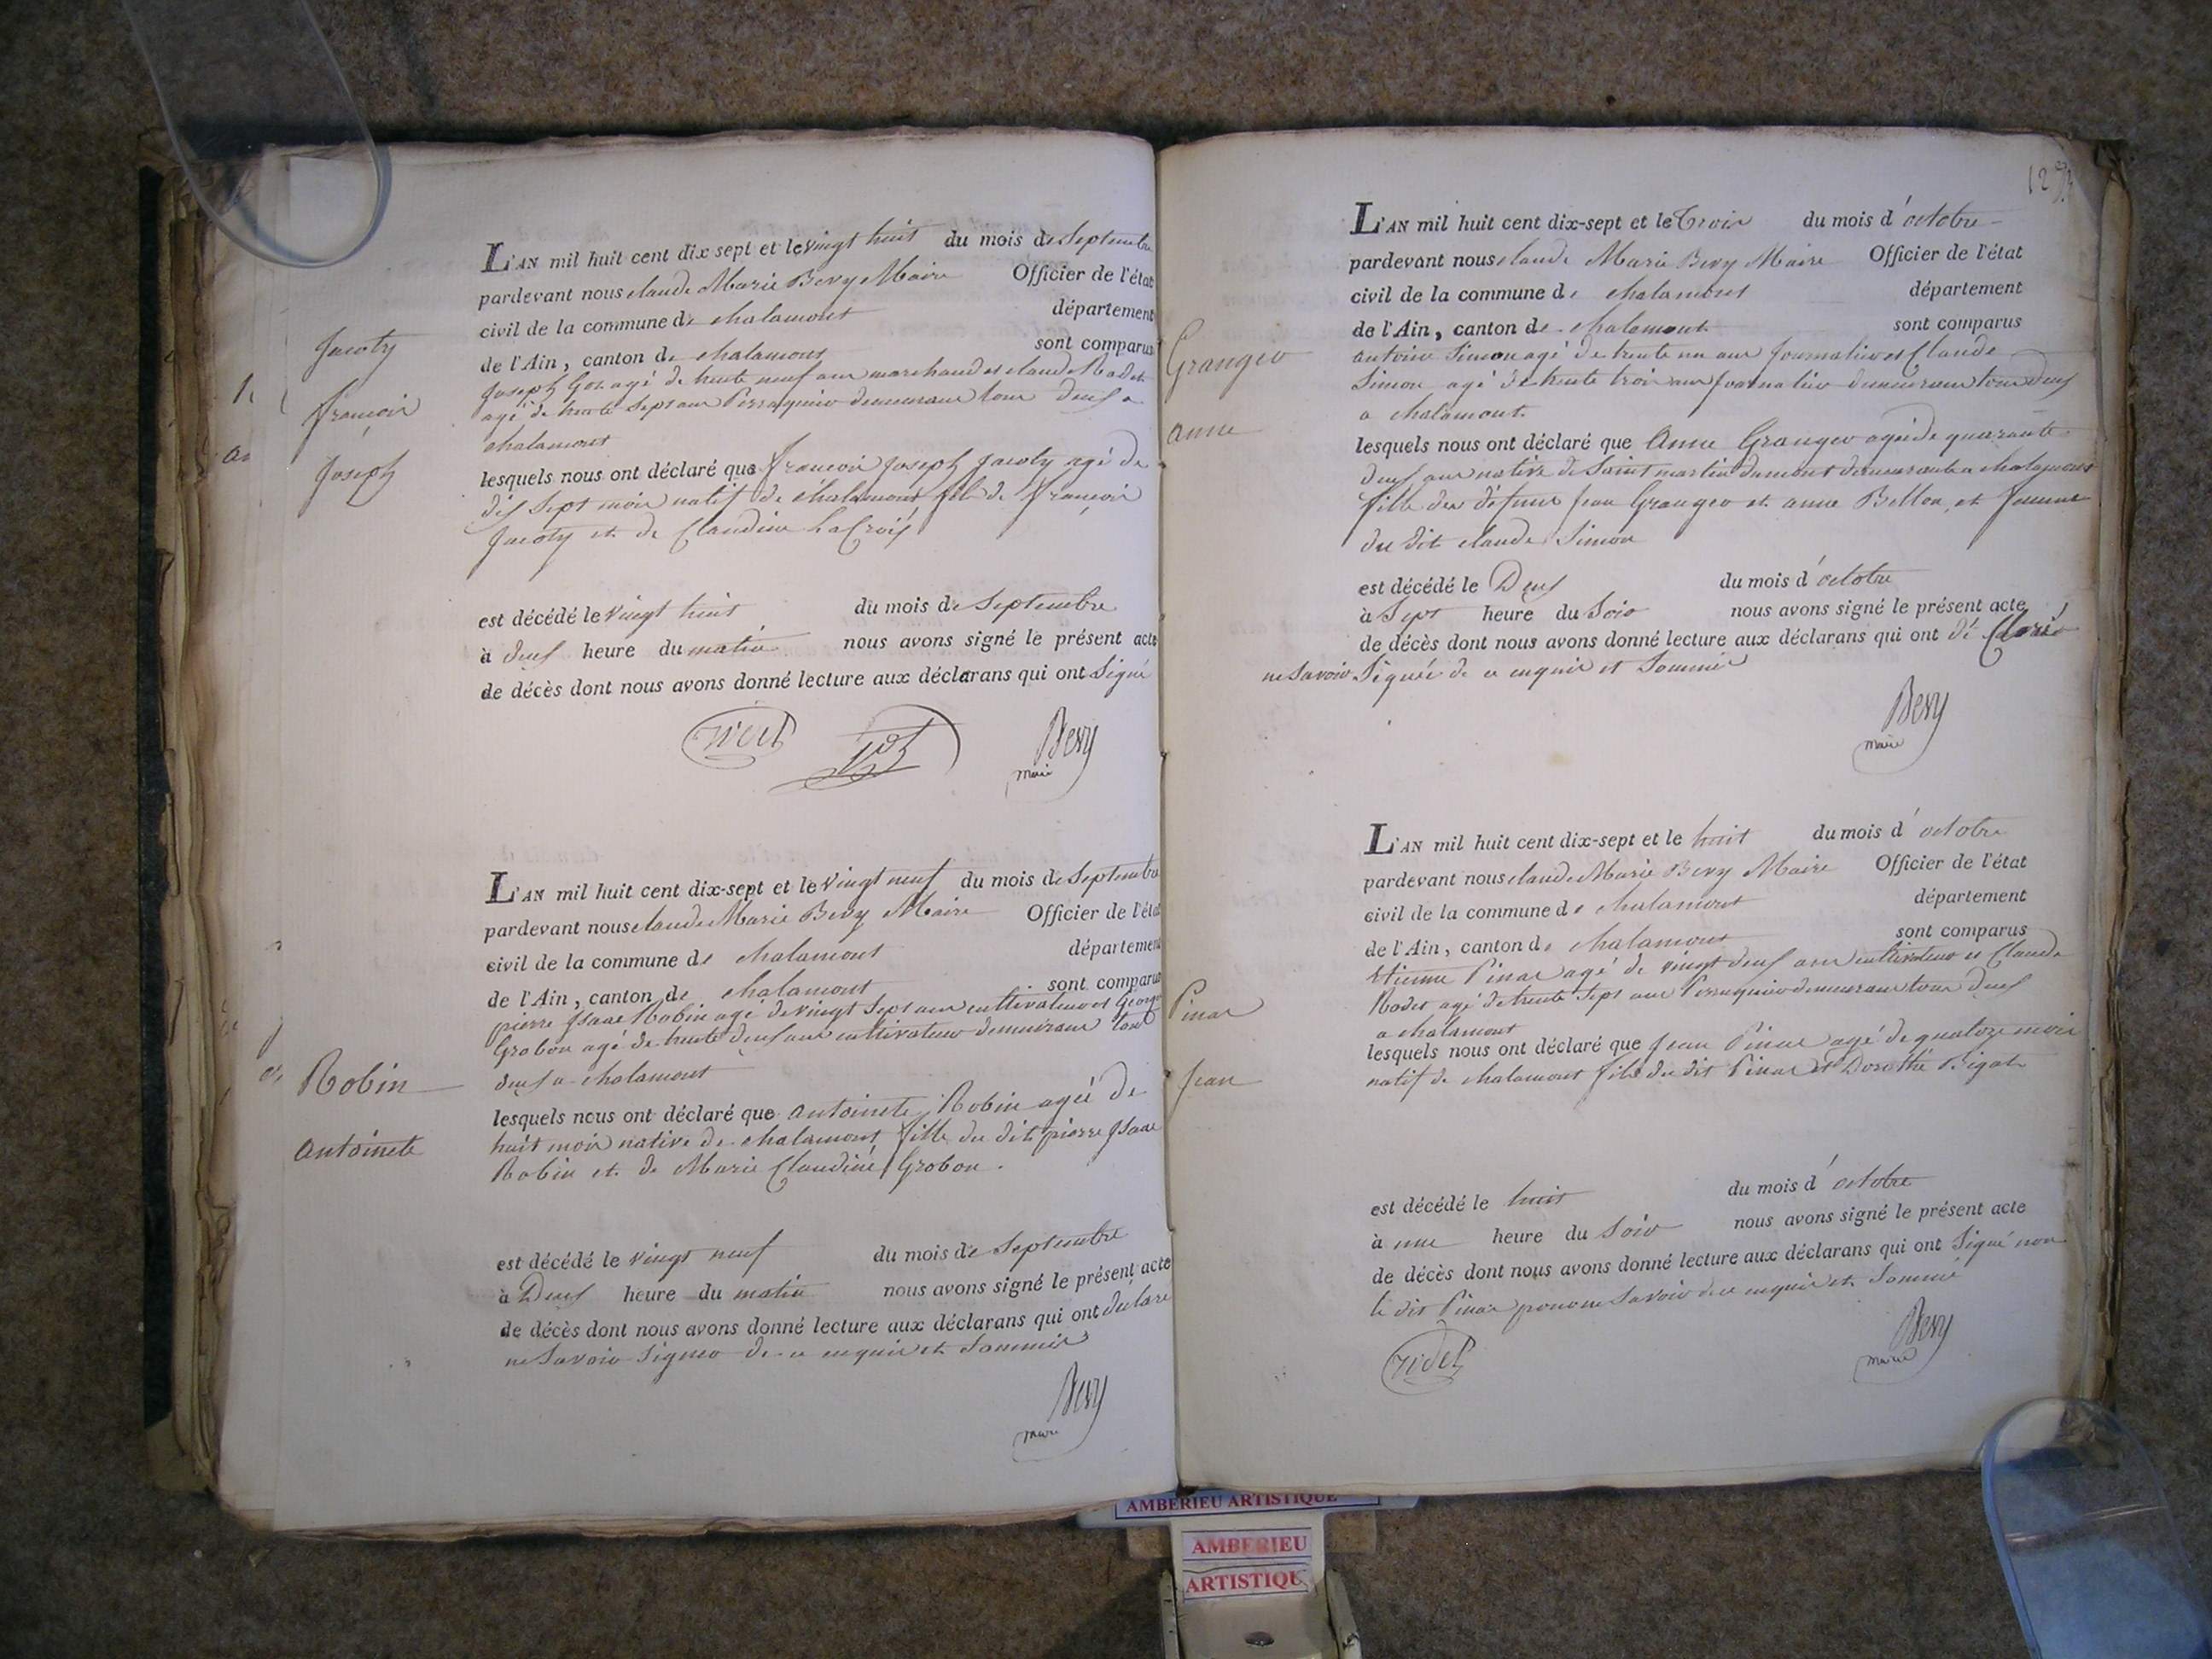 Jacoty
françois
Joseph
L'AN mil huit cent dix sept et le vingt huit du mois de Septembre
pardevant nous claude Marie Bevy Maire Officier de l'état
civil de la commune de chalamont département
de l'Ain, canton de chalamont sont comparus
Joseph agé de trente neuf ans marchand et claude
agé de trente sept ans Perruquier demeurant tous deux a
chalamont
lesquels nous ont déclaré que françois Joseph Jacoty agé de
dix sept mois natif de chalamont fils de françois
Jacoty et de Claudine LaCroix
est décédé le vingt huit du mois de Septembre
à deux heure du matin nous avons signé le présent acte
de décès dont nous avons donné lecture aux déclarans qui ont Signé
Bevy
maire
Robin
Antoinete
L'AN mil huit cent dix-sept et le vingt neuf du mois de Septembre
pardevant nous claude Marie Bevy Maire Officier de l'état
civil de la commune de chalamont département
de l'Ain, canton de chalamont sont comparus
pierre Isaac Robin agé de vingt sept ans cultivateur et George
Grobon agé de trente deux ans cultivateur demeurant tous
deux a chalamont
lesquels nous ont déclaré que antoinete Robin agée de
huit mois native de chalamont fille du dit pierre Isaac
Robin et de Marie Claudine Grobon.
est décédé le vingt neuf du mois de Septembre
à Deux heure du matin nous avons signé le présent acte
de décès dont nous avons donné lecture aux déclarans qui ont déclaré
ne Savoir Signer de ce enquis et Sommés
Bevy
maire
Granger
anne
L'AN mil huit cent dix-sept et le Trois du mois d'octobre
pardevant nous claude Marie Bevy Maire Officier de l'état
civil de la commune de chalamont département
de l'Ain, canton de chalamont sont comparus
antoine Simon agé de trente un ans Journalier et Claude
Simon agé de trente trois ans Journalier demeurant tous deux
a chalamont
lesquels nous ont déclaré que Anne Granger agée de quarante
deux ans native de Saint martin dumont demeurante a chalamont
fille des défunt Jean Granger et anne Bellon, et femme
du dit claude Simon
est décédé le Deux du mois d'octobre
à Sept heure du Soir nous avons signé le présent acte
de décès dont nous avons donné lecture aux déclarans qui ont dé Claré
ne Savoir Signer de ce enquis et Sommés
Bevy
maire
Pinar
Jean
L'AN mil huit cent dix-sept et le huit du mois d'octobre
pardevant nous claude Marie Bevy Maire Officier de l'état
civil de la commune de chalamont département
de l'Ain, canton de chalamont sont comparus
Etienne Pinar agé de vingt deux ans cultivateur et Claude
agé de trente sept ans Perruquier demeurant tous deux
a chalamont
lesquels nous ont déclaré que Jean Pinar agé de quatorze mois
natif de chalamont fils du dit Pinar et Dorothé
est décédé le huit du mois d'octobre
à une heure du Soir nous avons signé le présent acte
de décès dont nous avons donné lecture aux déclarans qui ont Signé non
le dit Pinar pour ne Savoir de ce enquis et Sommé
Bevy
maire
AMBERIEU ARTISTIQUE
AMBERIEU
ARTISTIQU